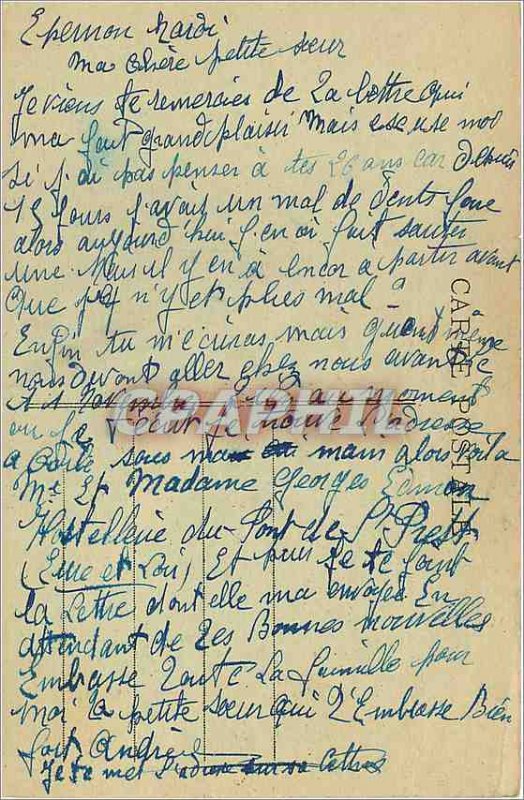 Epernon Mardi
Ma chère petite sœur
Je viens te remercier de ta lettre qui
m'a fait grand plaisir Mais excuse moi
si j'ai pas penser à tes 26 ans car depuis
15 jours j'avait un mal de dents
alors aujourd'hui j'en ai fait sauter
une. Mais il y en à encor a partir avant
Que j'y n'y et plus mal ?
Enfin tu m'écriras mais quant même
nous devont aller chez nous avant le
moment
ou je
sous main alors voila
Mr Et Madame Georges Edmon
Hostellerie du Pont de St Prest
(Eure et Loir) Et puis je te joint
la lettre dont elle ma envoyée En
attendant de tes Bonnes nouvelles
Embrasse toute La famille pour
Moi ta petite sœur qui t'Embrasse Bien
fort Andrée
Je te met l'adresse sur sa lettre
CARTE POSTALE
GRAPHIL